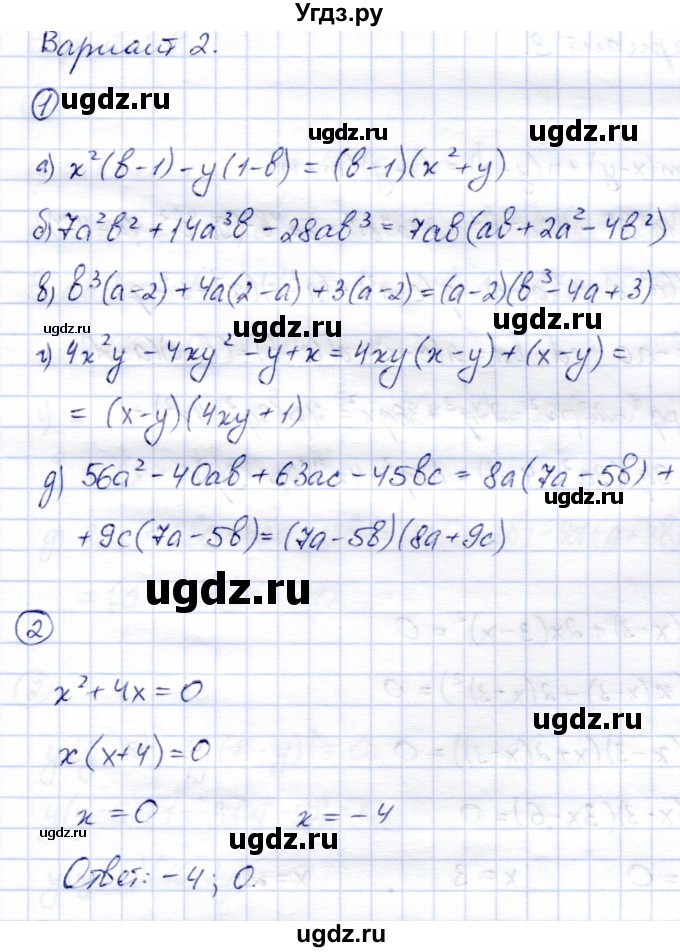 Угдз.ру
Вариант 2.
① ugdz.ru
ugdz.ru
а) x²(в-1) - y(1-в) = (в-1)(x²+y)
б) 7a²в² + 14a³в - 28aв³ = 7aв(aв + 2a² - 4в²)
в) в³(a-2) + 4a(2-a) + 3(a-2) = (a-2)(в³ - 4a + 3)
ugdz.ru ugdz.ru ugdz.ru
г) 4x²y - 4xy² - y + x = 4xy(x-y) + (x-y) =
= (x-y)(4xy+1)
д) 56a² - 40aв + 63ac - 45вc = 8a(7a-5в) +
ugdz.ru
+ 9c(7a-5в) = (7a-5в)(8a+9c)
ugdz.ru
②
x² + 4x = 0
ugdz.ru
x(x+4) = 0
x = 0 x = -4
ugdz.ru ugdz.ru
Ответ: -4; 0.
ugdz.ru